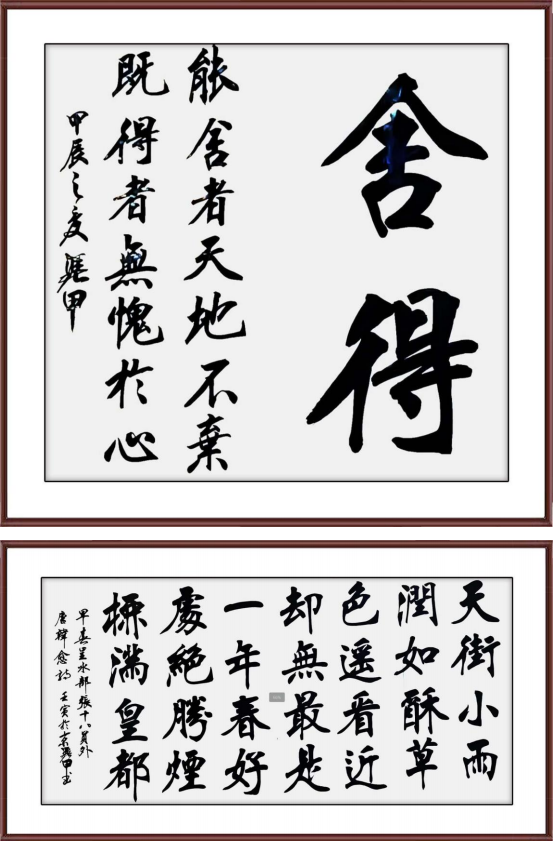 舍得
能舍者天地不棄
既得者無愧於心
甲辰之夏 甲
天街小雨
潤如酥草
色遥看近
却無最是
一年春好
處絕勝煙
滿皇都
早春呈水部張十八員外
唐韓愈詩 壬寅於京 甲书